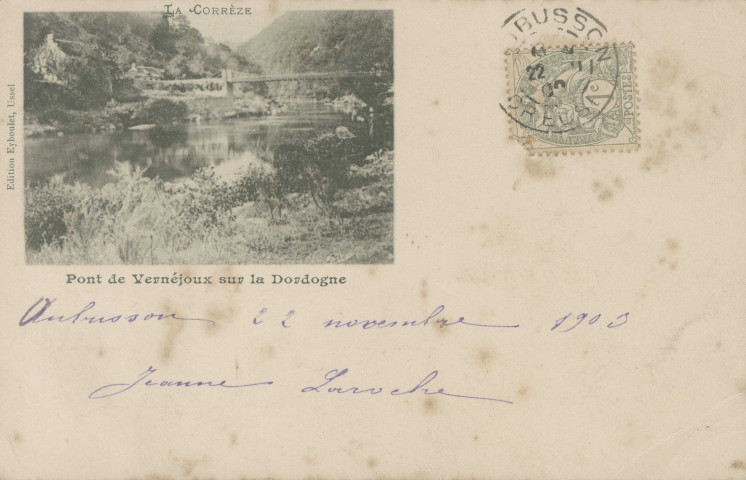 La Corrèze
Edition Eyboulet, Ussel
Pont de Vernéjoux sur la Dordogne
Aubusson 22 novembre 1903
Jeanne Laroche
22
03
1c
POSTES